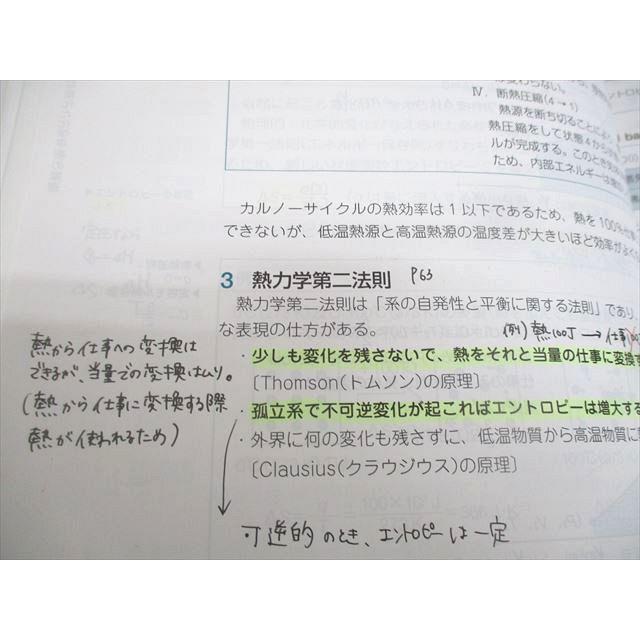 Ⅳ．断熱圧縮(4→1)
熱源を断ち切ることによ
熱圧縮をして状態4から
ルが完成する。このとき
ため、内部エネルギーは
カルノーサイクルの熱効率は1以下であるため、熱を100％仕
できないが、低温熱源と高温熱源の温度差が大きいほど効率が
3 熱力学第二法則 P63
熱力学第二法則は「系の自発性と平衡に関する法則」であり、
な表現の仕方がある。
(例) 熱100J → 仕事
・少しも変化を残さないで、熱をそれと当量の仕事に変換す
〔Thomson(トムソン)の原理〕
・孤立系で不可逆変化が起こればエントロピーは増大する
・外界に何の変化も残さずに、低温物質から高温物質に
〔Clausius(クラウジウス)の原理〕
熱から仕事への変換は
できるが、当量での変換はムリ。
(熱から仕事に変換する際
熱が使われるため)
可逆的のとき、エントロピーは一定